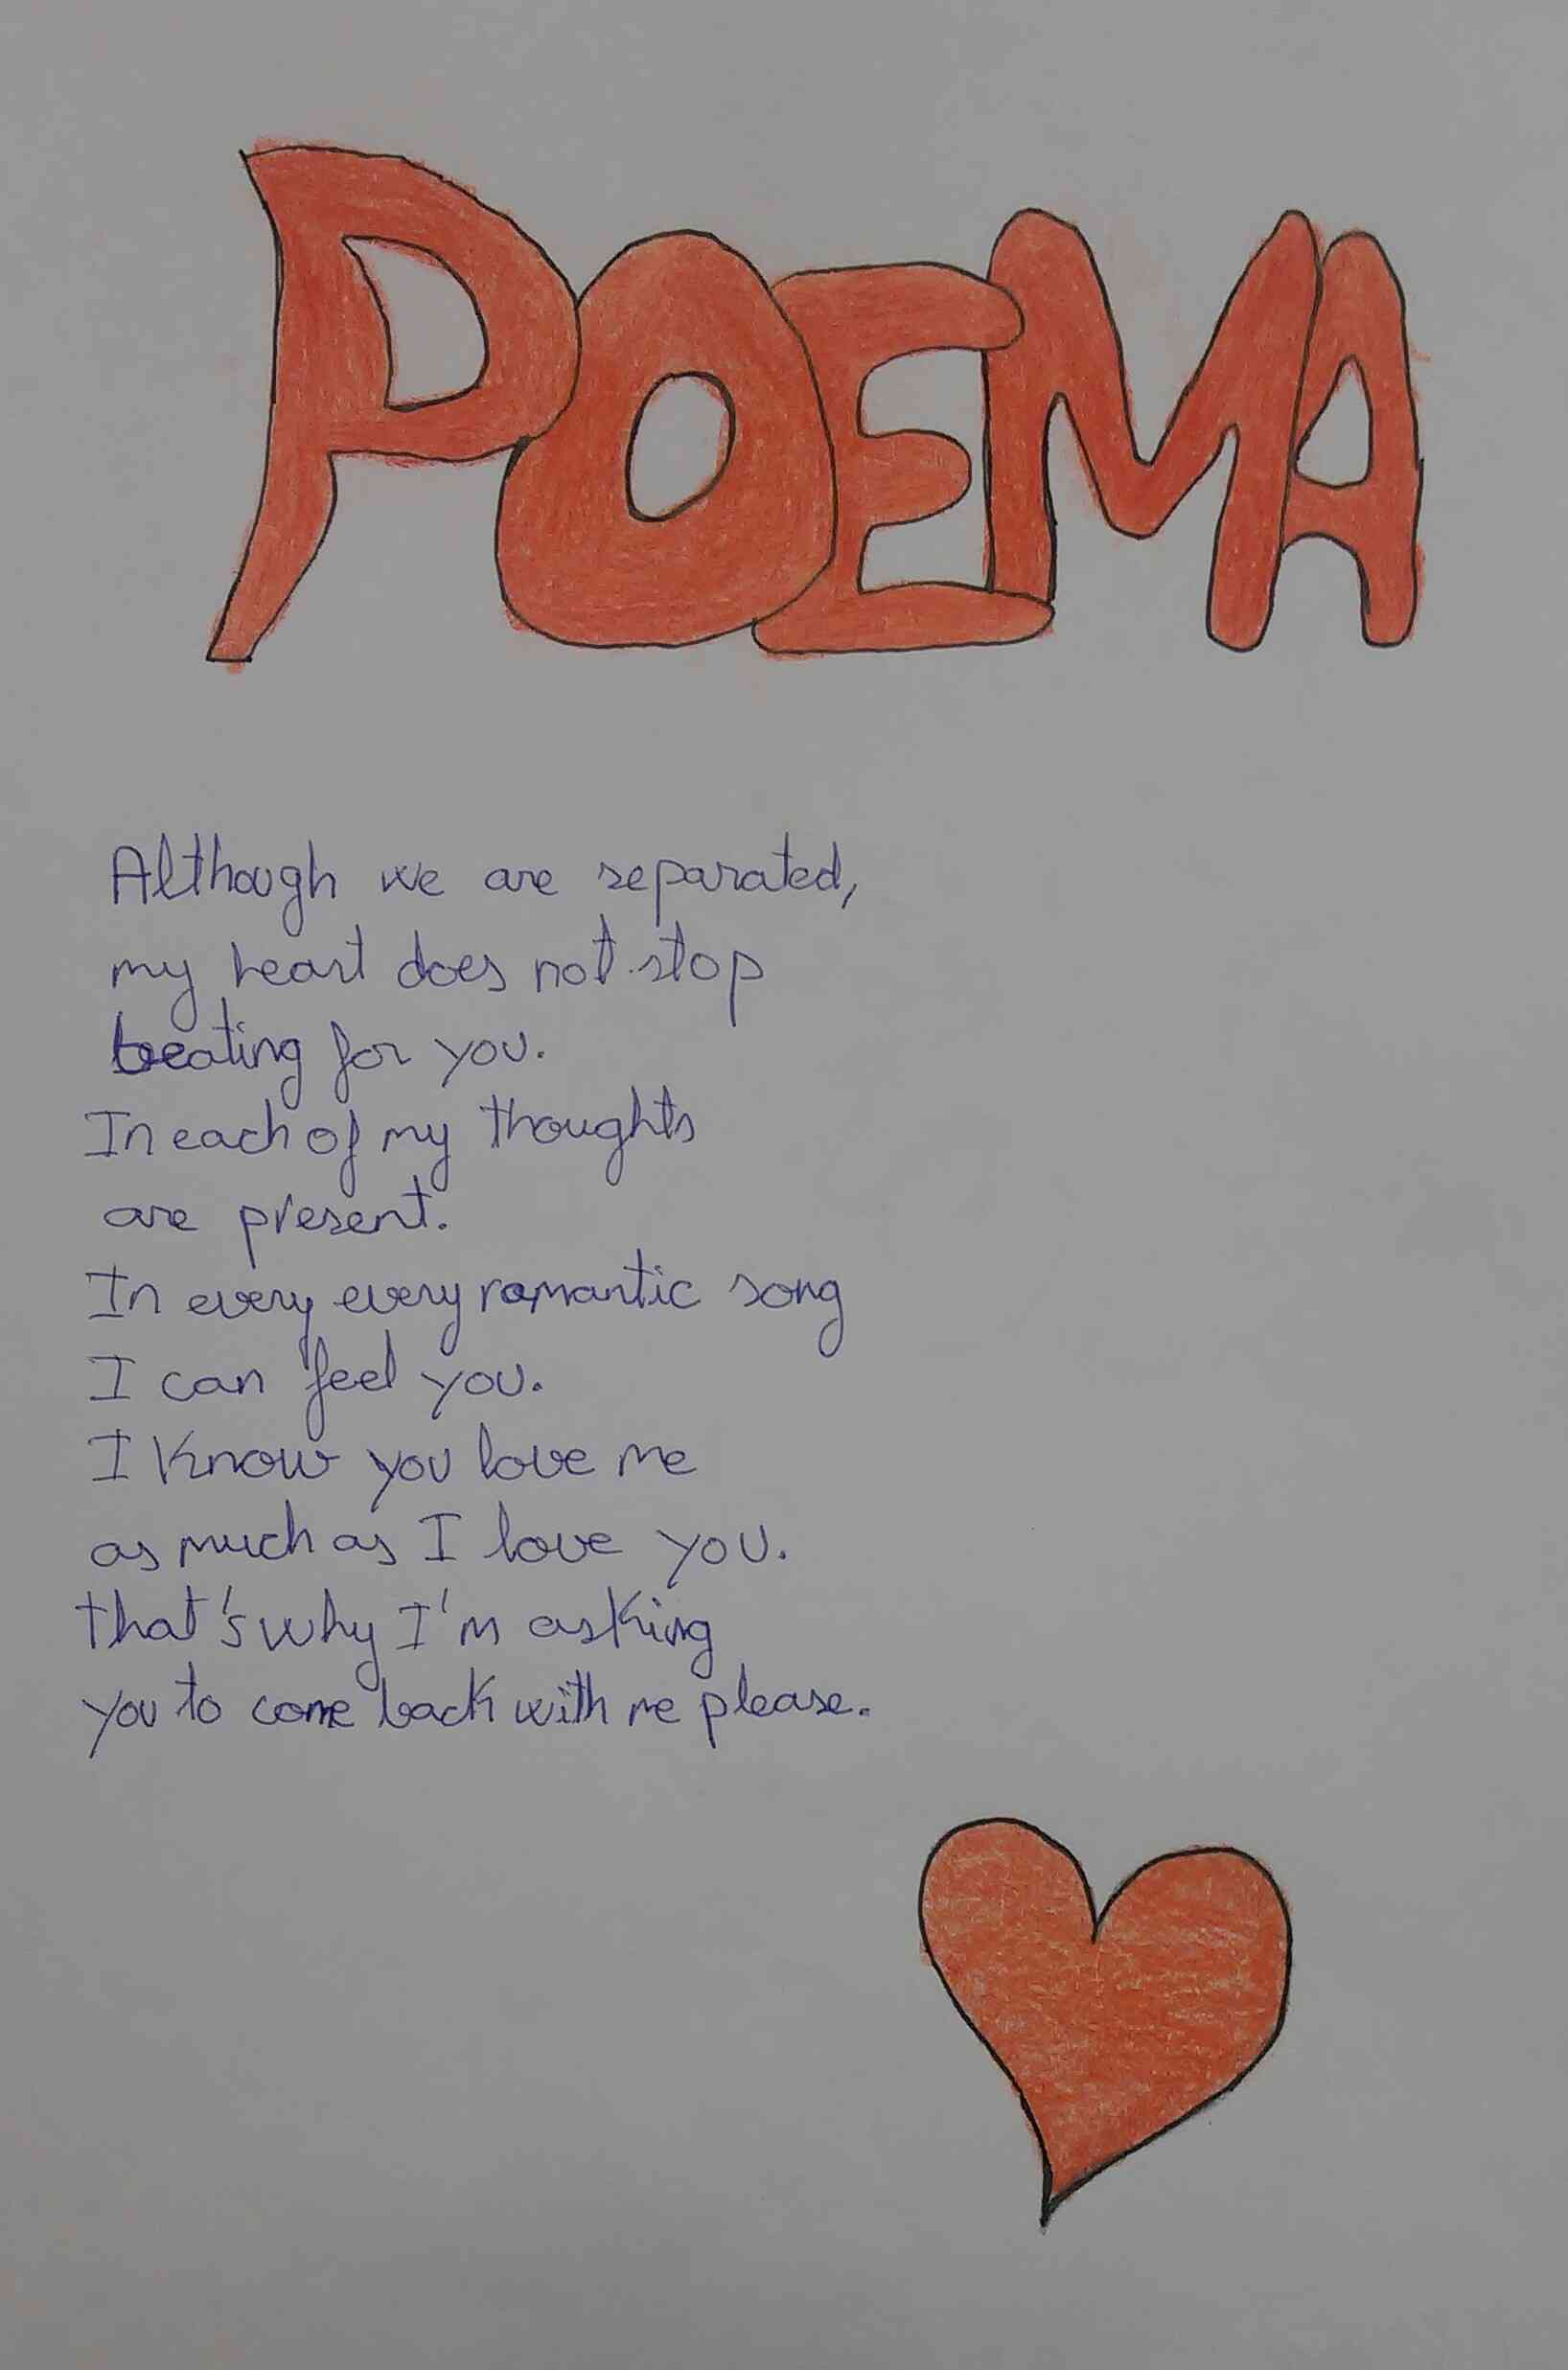 POEMA
Although we are separated,
my heart does not stop
beating for you.
In each of my thoughts
are present.
In every every romantic song
I can feel you.
I Know you love me
as much as I love you.
that's why I'm asking
you to come back with me please.